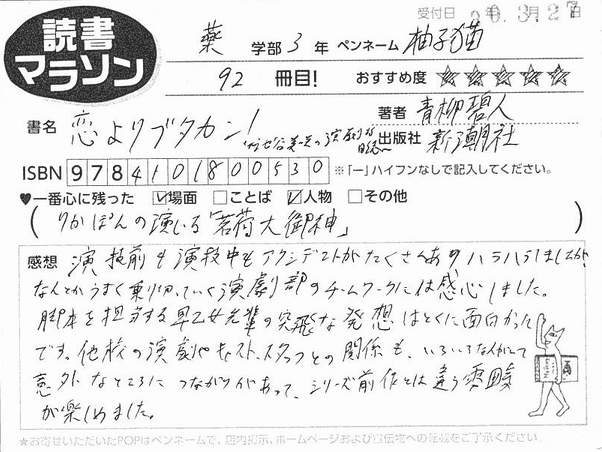 読書
マラソン
受付日 20年3月27日
薬 学部 3 年 ペンネーム 柚子猫
92 冊目! おすすめ度 ☆☆☆☆☆
書名 恋よりブタカン!
著者 青柳碧人
出版社 新潮社
ISBN 9784101800530 ※「ー」ハイフンなしで記入してください。
♥一番心に残った ☑場面 □ことば ☑人物 □その他
(りかぽんの演じる「茗荷大御神」)
感想 演技前も演技中もアクシデントがたくさんありハラハラしましたが
なんとかうまく乗り切っていく演劇部のチームワークには感心しました。
脚本を担当する早乙女先輩の突飛な発想はとくに面白かった
です。他校の演劇やキャスト、スタッフとの関係も、いろいろな
意外なところにつながりがあって、シリーズ前作とは違う雰囲気
が楽しめました。
★お寄せいただいたPOPはペンネームで、店内掲示、ホームページおよび宣伝物への転載をご了承ください。